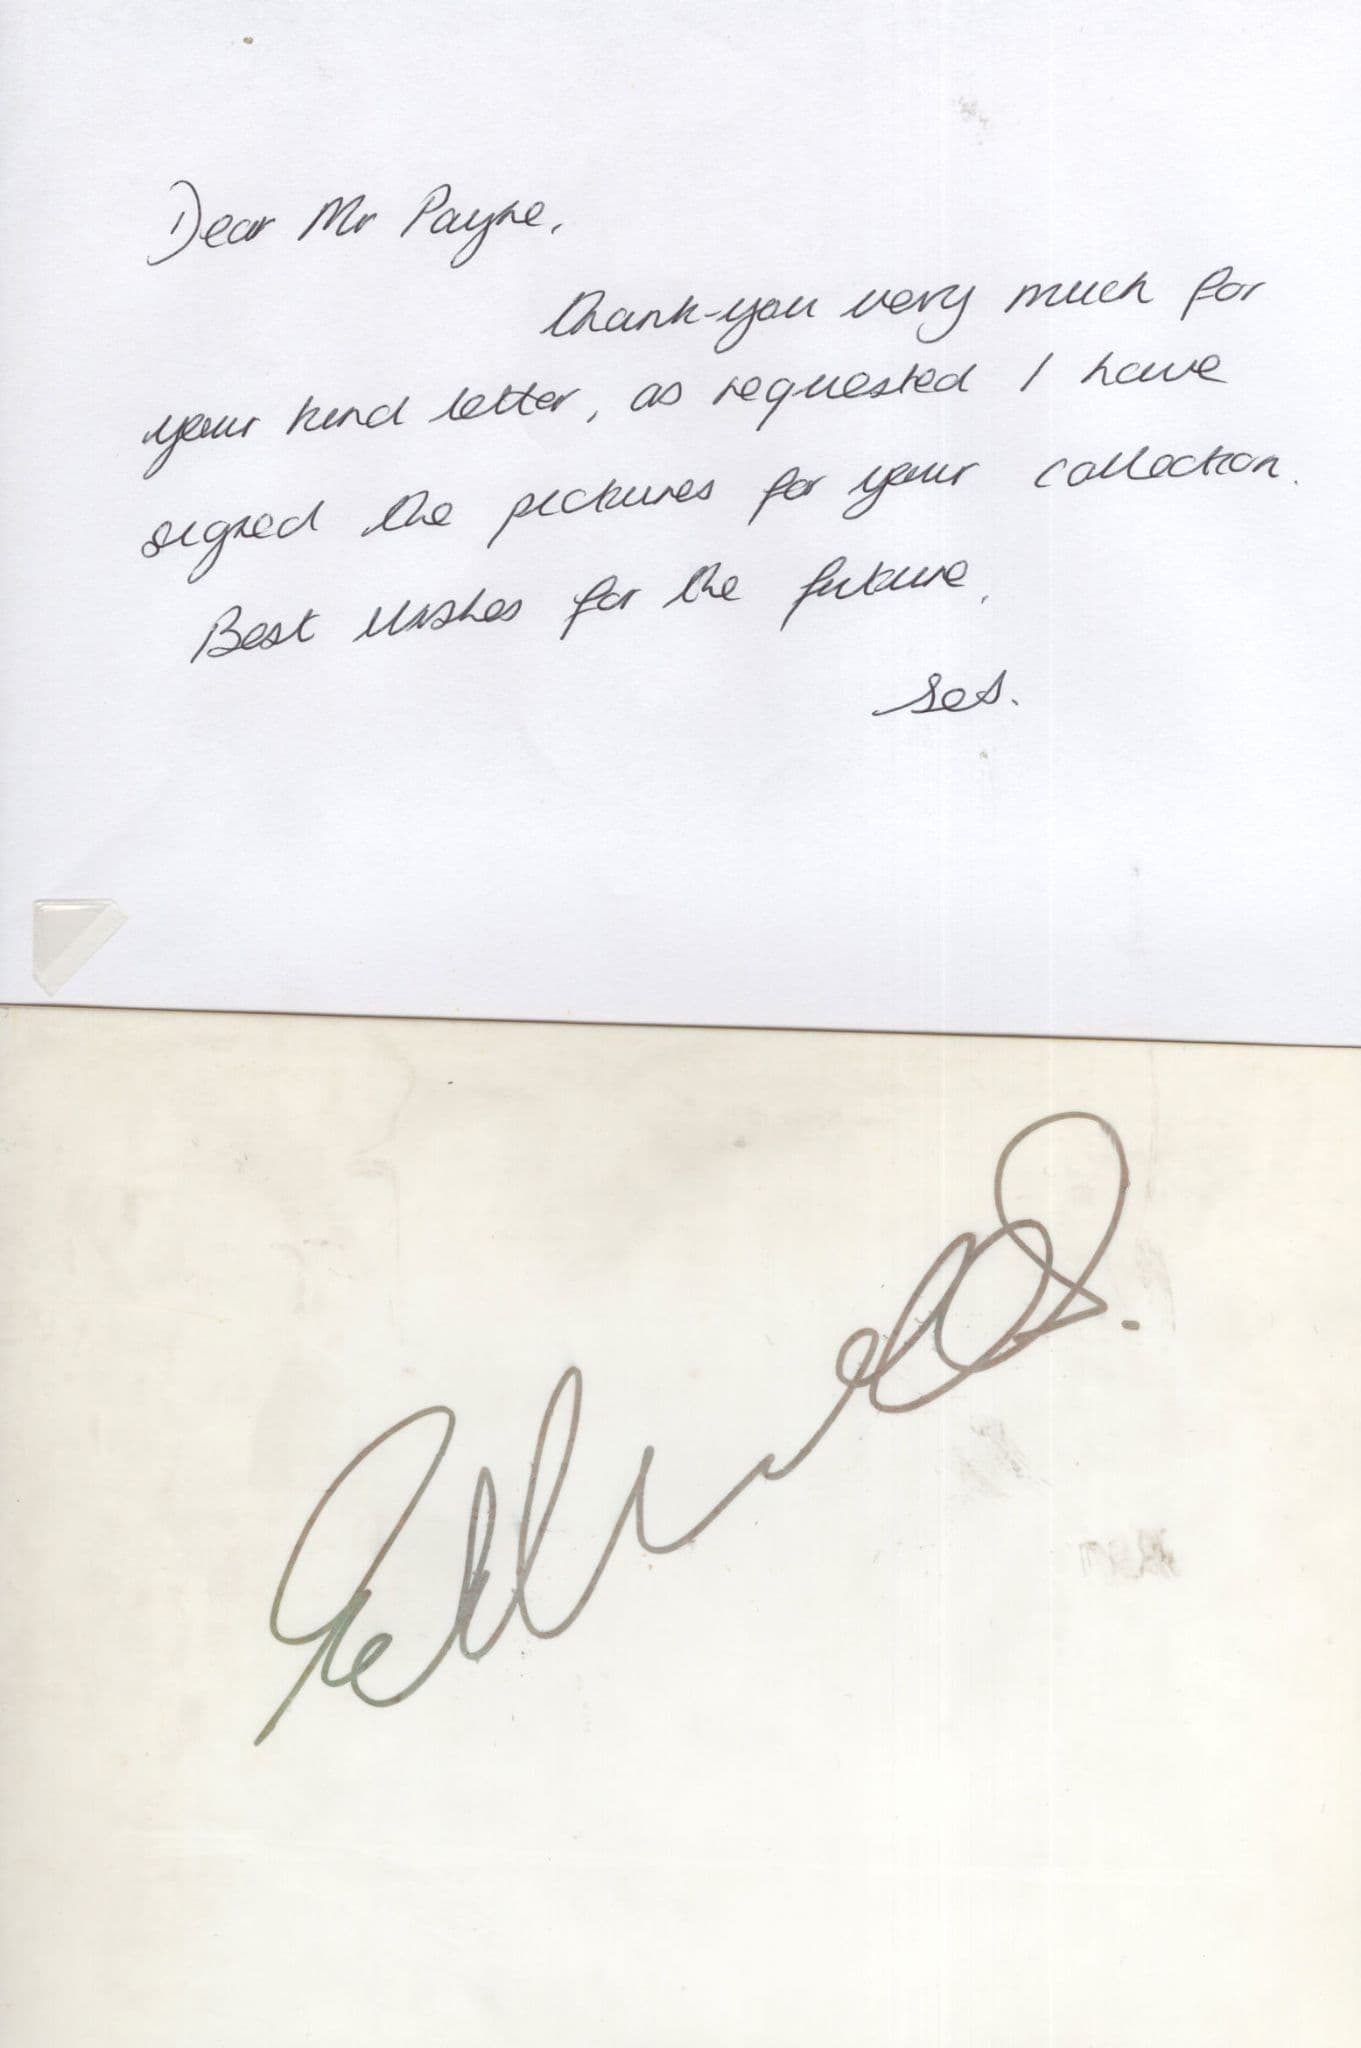 Dear Mr Payne,
thank-you very much for
your kind letter, as requested I have
signed the pictures for your collection.
Best Wishes for the future,